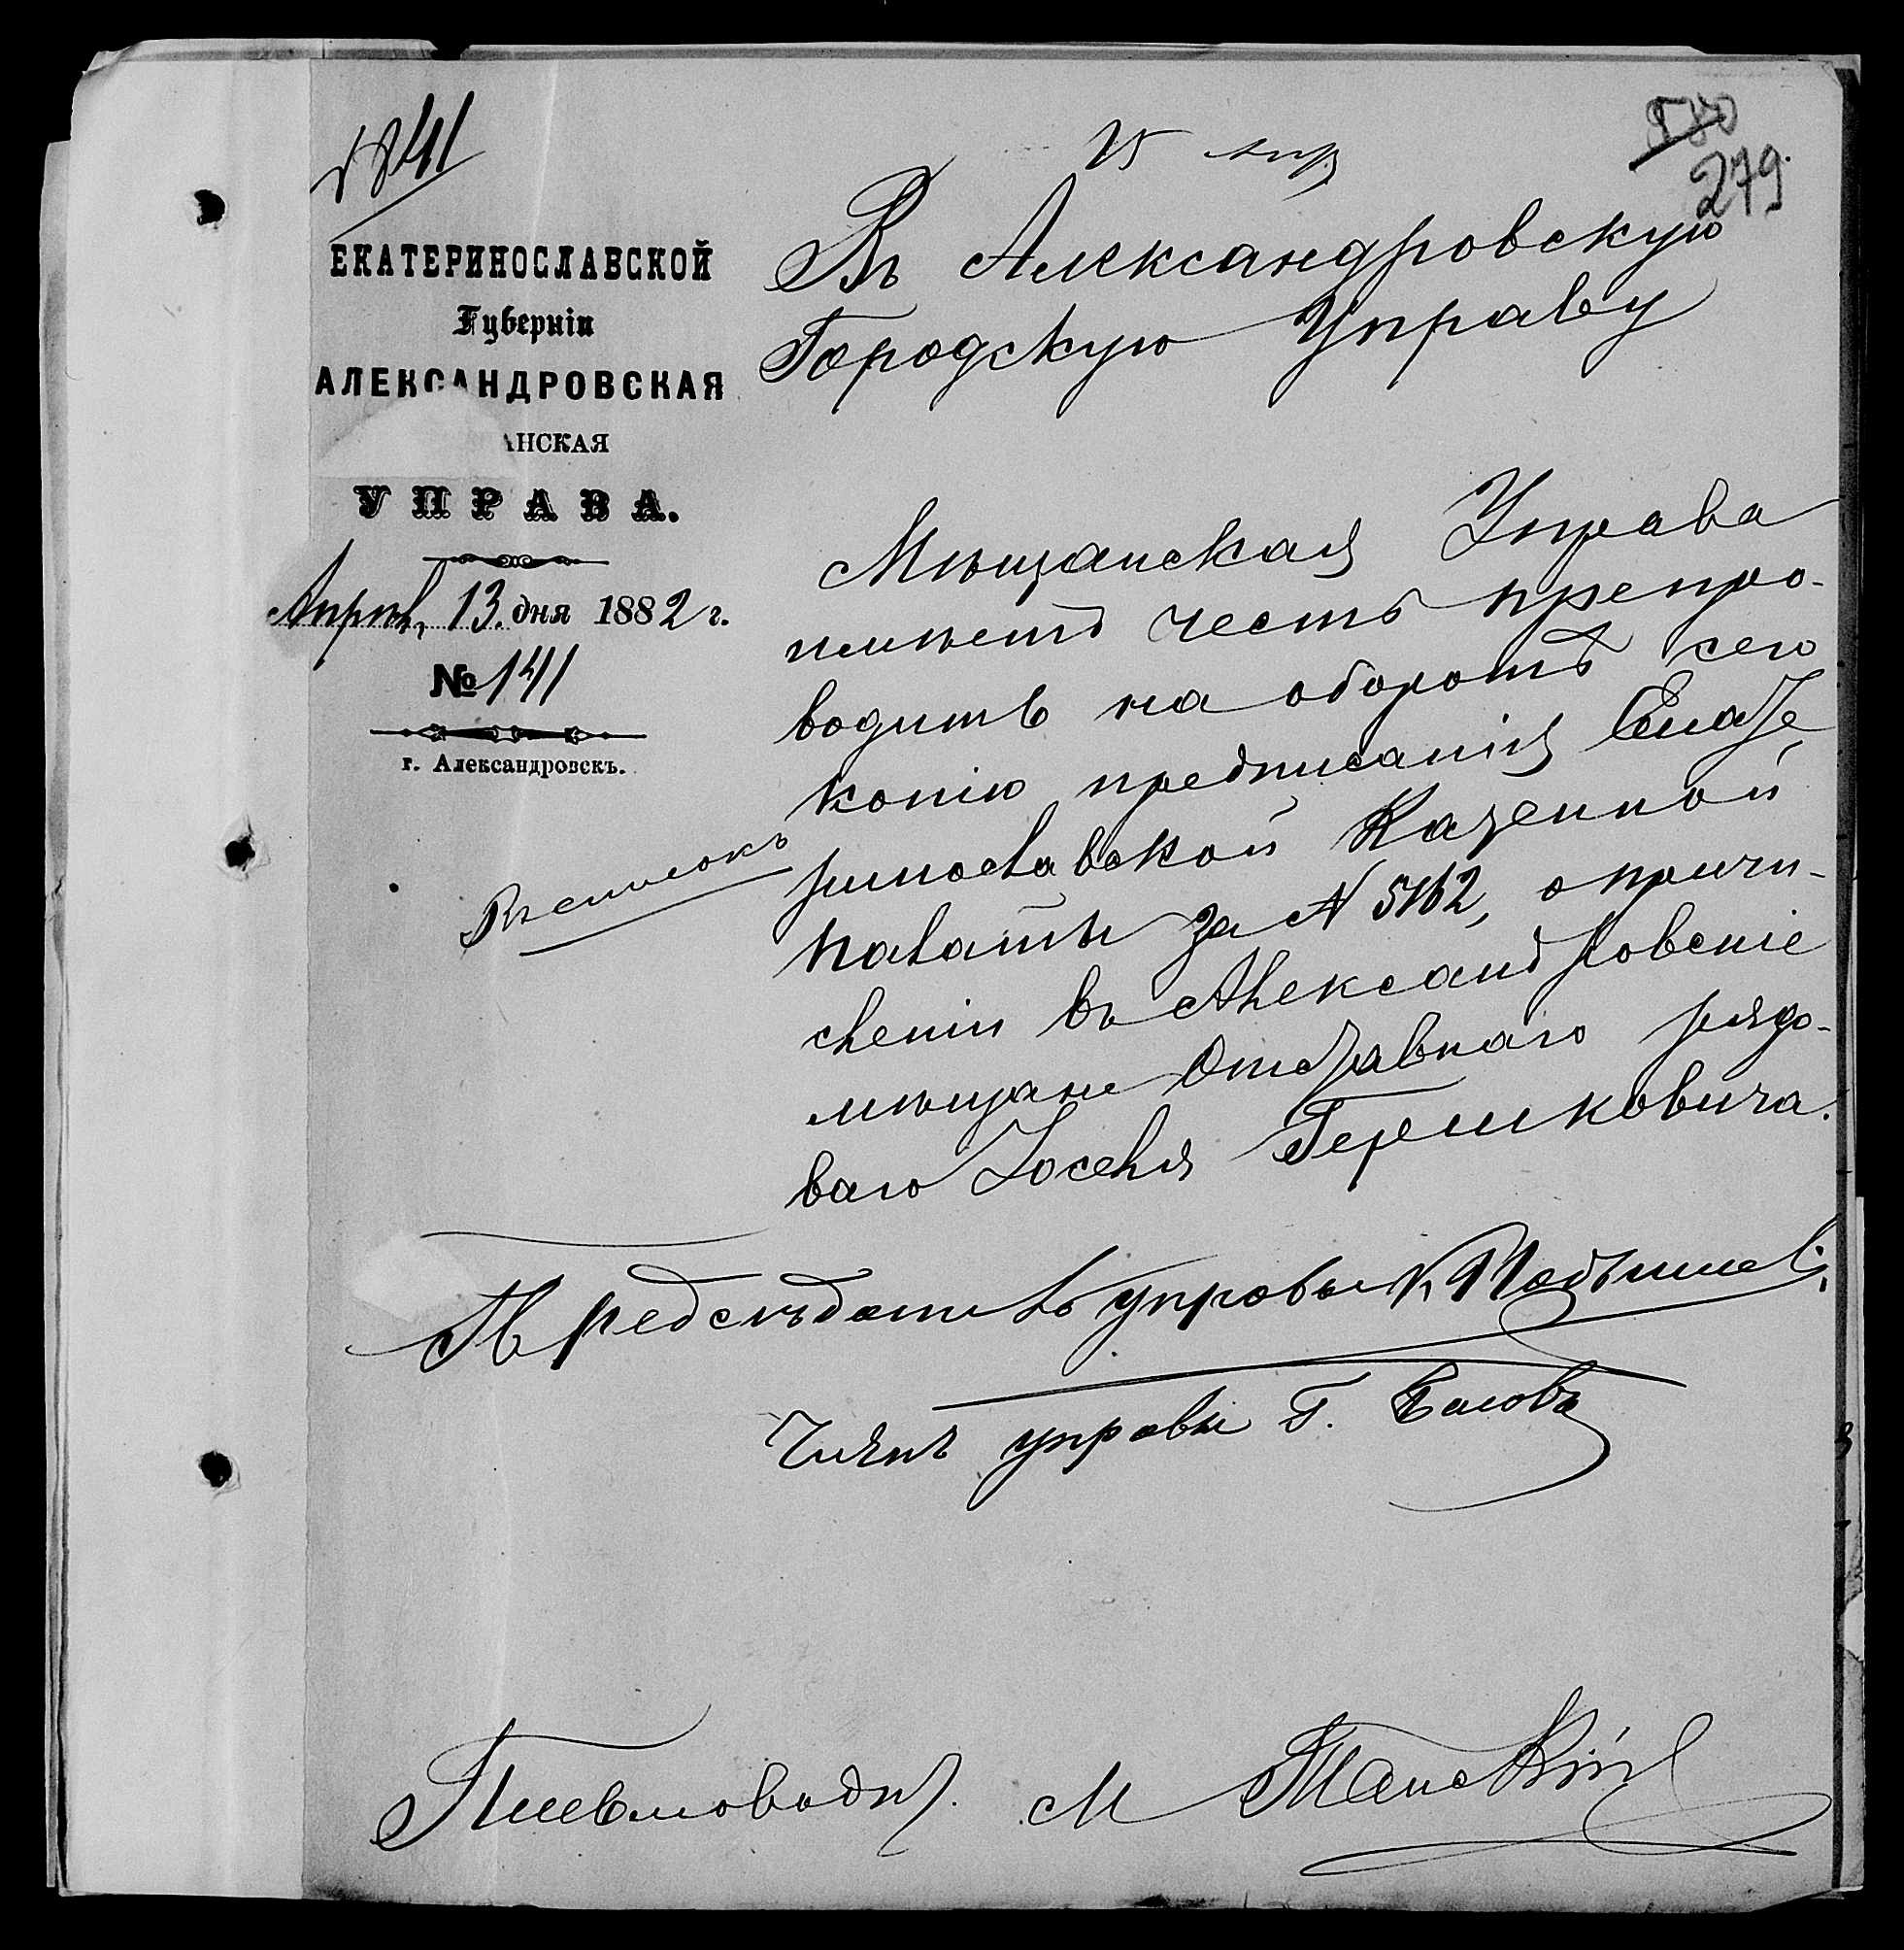 15 апр
279
ЕКАТЕРИНОСЛАВСКОЙ
Губерніи
АЛЕКСАНДРОВСКАЯ
АНСКАЯ
УПРАВА.
Апрѣля 13 дня 1882 г.
№ 141
г. Александровскъ.
Въ Александровскую
Городскую Управу
Мѣщанская Управа
имѣетъ честь препро-
водить на оборотѣ сего
копію предписанія Екате
ринославской Казенной
Палаты за N 5162, о причи-
сленіи въ Александровскіе
мѣщане Отставнаго рядо-
ваго Іоселя Гершковича.
Предсѣдатель управы
Членъ управы Г.
Письмоводит. М